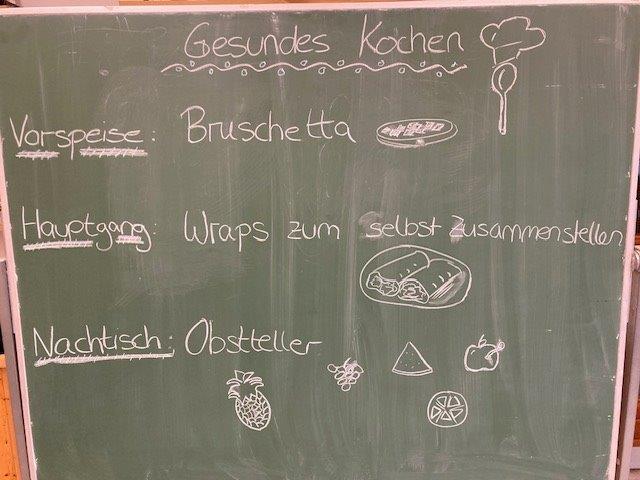 Gesundes Kochen
Vorspeise: Bruschetta
Hauptgang: Wraps zum selbst Zusammenstellen
Nachtisch: Obstteller